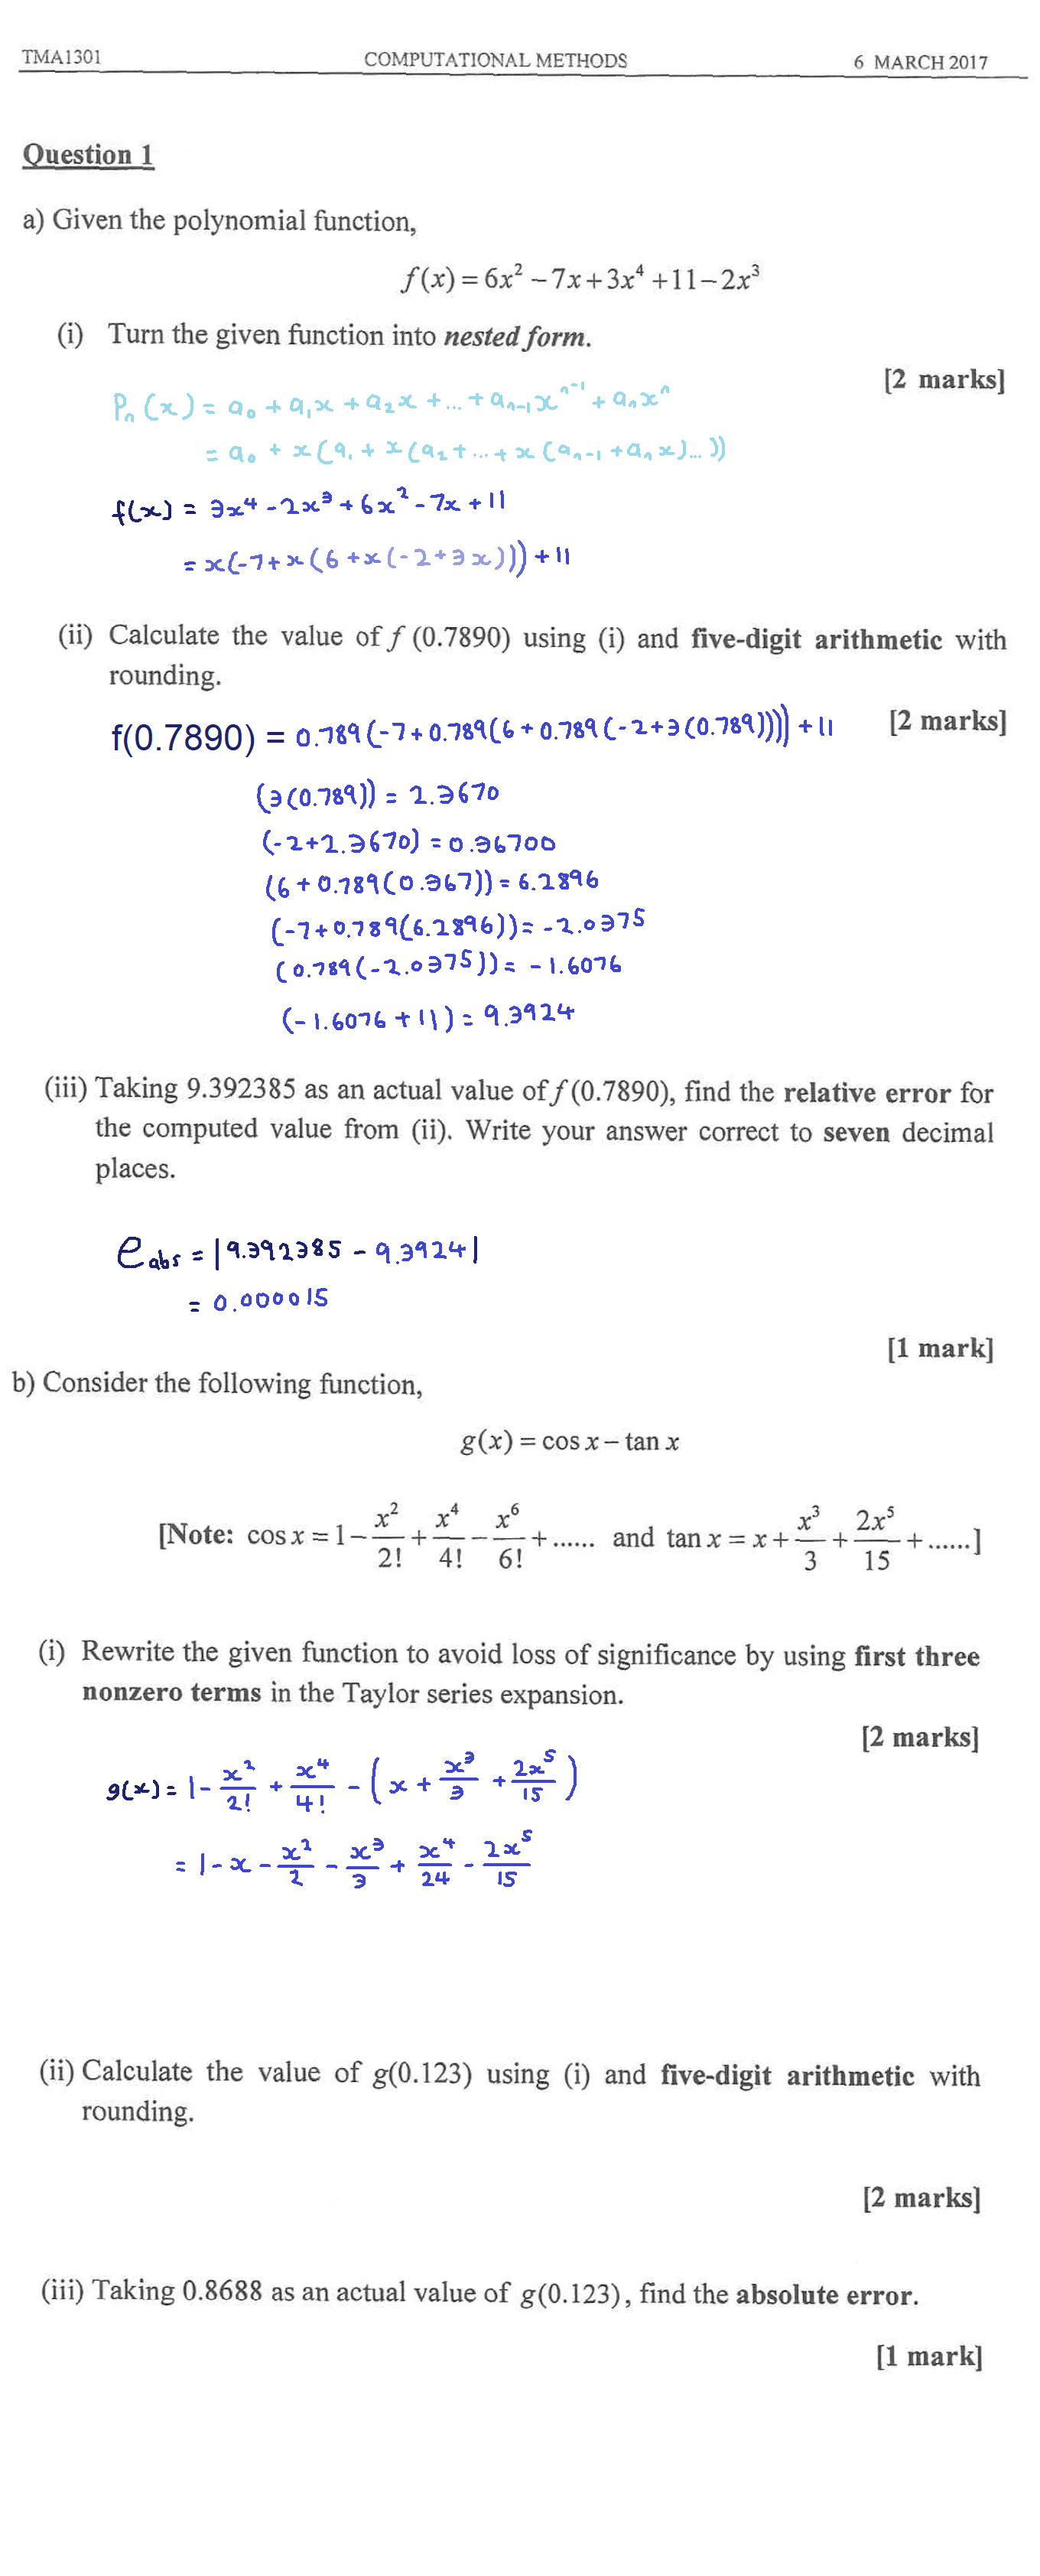 TMA1301 COMPUTATIONAL METHODS 6 MARCH 2017
Question 1
a) Given the polynomial function,
f(x) = 6x² − 7x + 3x⁴ + 11 − 2x³
(i) Turn the given function into nested form.
[2 marks]
Pₙ(x) = a₀ + a₁x + a₂x + ... + aₙ₋₁xⁿ⁻¹ + aₙxⁿ
= a₀ + x(a₁ + x(a₂ + ... + x(aₙ₋₁ + aₙx)...))
f(x) = 3x⁴ - 2x³ + 6x² - 7x + 11
= x(-7 + x(6 + x(-2 + 3x))) + 11
(ii) Calculate the value of f (0.7890) using (i) and five-digit arithmetic with
rounding.
[2 marks]
f(0.7890) = 0.789(-7 + 0.789(6 + 0.789(-2 + 3(0.789)))) + 11
(3(0.789)) = 2.3670
(-2 + 2.3670) = 0.36700
(6 + 0.789(0.367)) = 6.2896
(-7 + 0.789(6.2896)) = -2.0375
(0.789(-2.0375)) = -1.6076
(-1.6076 + 11) = 9.3924
(iii) Taking 9.392385 as an actual value of f (0.7890), find the relative error for
the computed value from (ii). Write your answer correct to seven decimal
places.
e abs = |9.392385 - 9.3924|
= 0.000015
[1 mark]
b) Consider the following function,
g(x) = cos x − tan x
[Note: cos x = 1 − x²/2! + x⁴/4! − x⁶/6! + ...... and tan x = x + x³/3 + 2x⁵/15 + ......]
(i) Rewrite the given function to avoid loss of significance by using first three
nonzero terms in the Taylor series expansion.
[2 marks]
g(x) = 1 - x²/2! + x⁴/4! - (x + x³/3 + 2x⁵/15)
= 1 - x - x²/2 - x³/3 + x⁴/24 - 2x⁵/15
(ii) Calculate the value of g(0.123) using (i) and five-digit arithmetic with
rounding.
[2 marks]
(iii) Taking 0.8688 as an actual value of g(0.123), find the absolute error.
[1 mark]